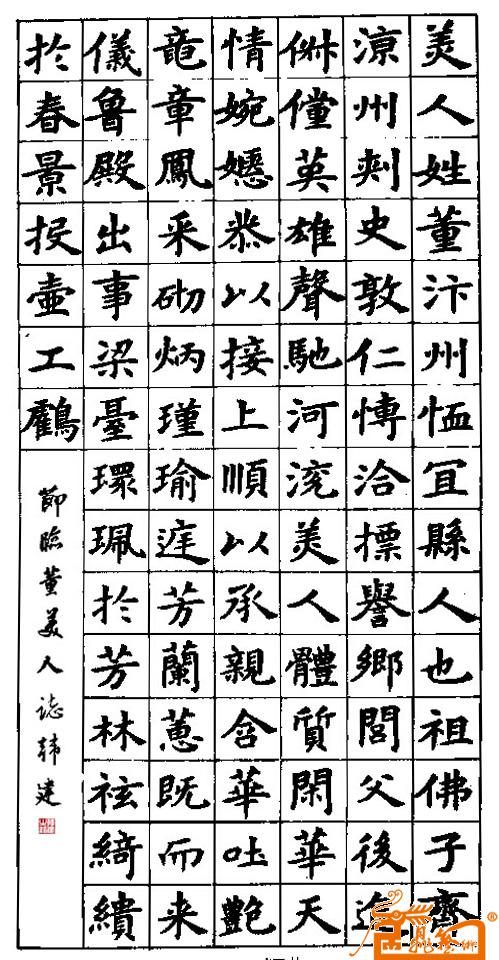 美人姓董汴州恤冝縣人也祖佛子齊
涼州刺史敦仁博洽摽譽鄉閭父後進
俶儻英雄聲馳河兗美人體質閑華天
情婉嫕恭以接上順以承親含華吐艷
竜章鳳采砌炳瑾瑜庭芳蘭蕙既而来
儀魯殿出事梁臺環珮於芳林袨綺繢
於春景投壺工鸖
節臨董美人誌韓建